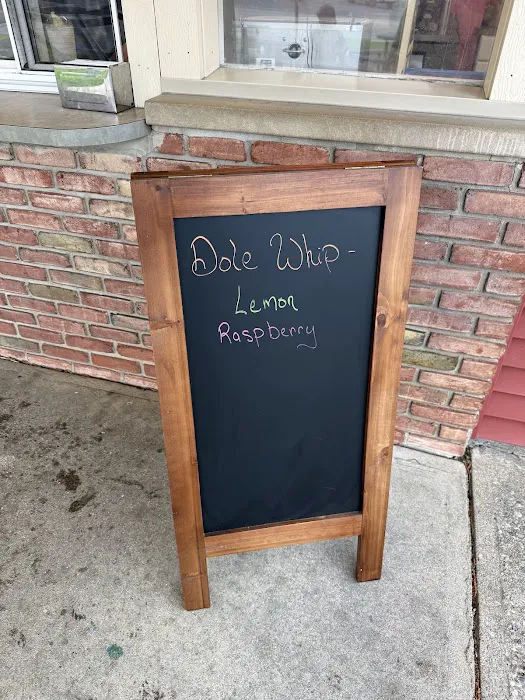 Dole Whip -
Lemon
Raspberry